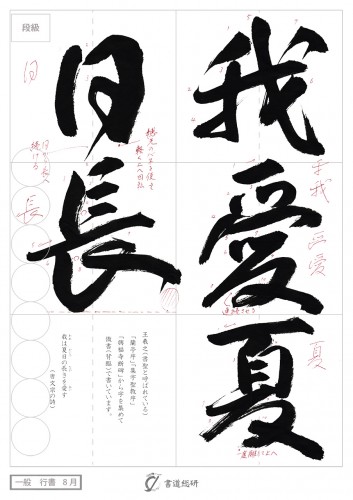 段級
我愛夏
日長
日
長
我
愛
夏
日から長へ
続ける
王羲之(書聖と呼ばれている)
「蘭亭序」「集字聖教序」
「興福寺断碑」から字を集めて
倣書(背臨)で書いています。
我は夏日の長さを愛す
(唐文宗の詩)
一般 行書 8月
書道総研